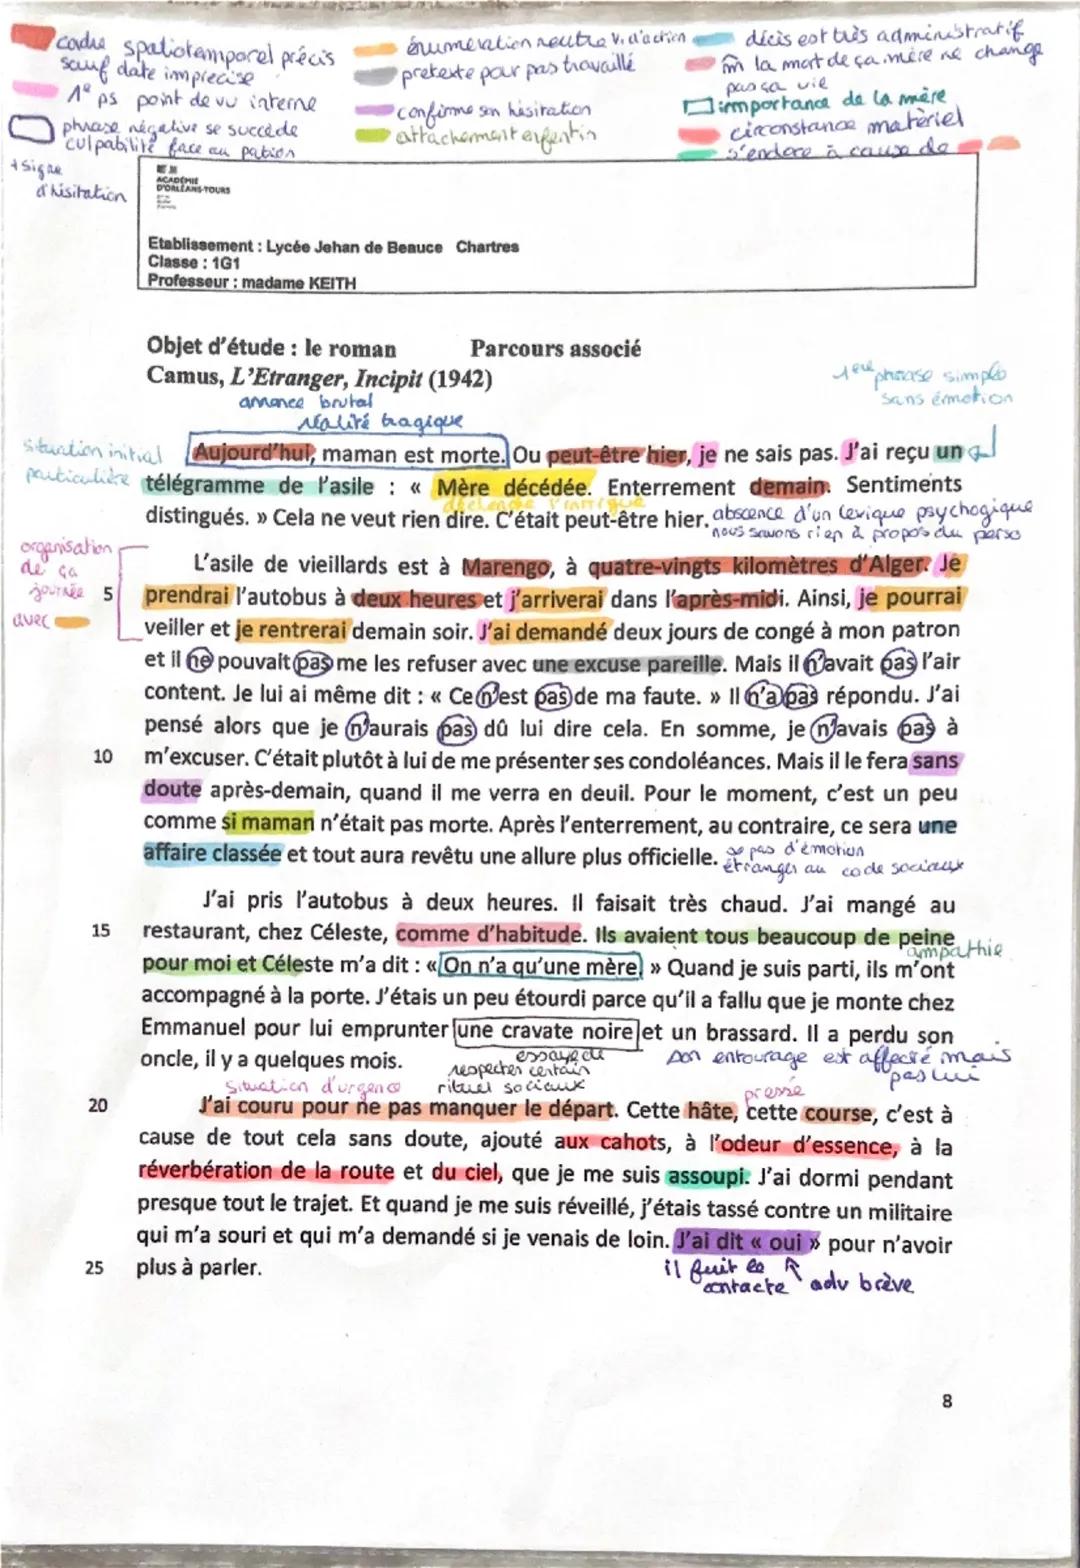 cadre spatiotemporel précis
sauf date imprecise
1e ps point de vu interne
phrase négative se succède
culpabilité face au patron
+ signe
d'hésitation
énumération neutre v. d'action
pretexte pour pas travaillé
confirme son hésitation
attachement enfentin
décis est très administratif
m̂ la mort de ça mère ne change
pas ça vie
importance de la mère
circonstance matèriel
s'endore à cause de
ACADÉMIE
D'ORLÉANS-TOURS
Etablissement : Lycée Jehan de Beauce Chartres
Classe : 1G1
Professeur : madame KEITH
Objet d'étude : le roman Parcours associé
Camus, L'Etranger, Incipit (1942)
annonce brutal
réalité tragique
1ere phrase simple
sans émotion
situation initial
particulière
Aujourd'hui, maman est morte. Ou peut-être hier, je ne sais pas. J'ai reçu un
télégramme de l'asile : « Mère décédée. Enterrement demain. Sentiments
déclenche l'intrigue
distingués. » Cela ne veut rien dire. C'était peut-être hier.
abscence d'un lexique psychogique
nous savons rien à propos du perso
organisation
de ça
journée
avec
L'asile de vieillards est à Marengo, à quatre-vingts kilomètres d'Alger. Je
5 prendrai l'autobus à deux heures et j'arriverai dans l'après-midi. Ainsi, je pourrai
veiller et je rentrerai demain soir. J'ai demandé deux jours de congé à mon patron
et il ne pouvait pas me les refuser avec une excuse pareille. Mais il n'avait pas l'air
content. Je lui ai même dit : « Ce n'est pas de ma faute. » Il n'a pas répondu. J'ai
pensé alors que je n'aurais pas dû lui dire cela. En somme, je n'avais pas à
10 m'excuser. C'était plutôt à lui de me présenter ses condoléances. Mais il le fera sans
doute après-demain, quand il me verra en deuil. Pour le moment, c'est un peu
comme si maman n'était pas morte. Après l'enterrement, au contraire, ce sera une
affaire classée et tout aura revêtu une allure plus officielle.
pas d'émotion
étranger au code sociaux
J'ai pris l'autobus à deux heures. Il faisait très chaud. J'ai mangé au
15 restaurant, chez Céleste, comme d'habitude. Ils avaient tous beaucoup de peine
ampathie
pour moi et Céleste m'a dit : « On n'a qu'une mère. » Quand je suis parti, ils m'ont
accompagné à la porte. J'étais un peu étourdi parce qu'il a fallu que je monte chez
Emmanuel pour lui emprunter une cravate noire et un brassard. Il a perdu son
oncle, il y a quelques mois.
essaye de
respecter certain
rituel sociaux
son entourage est affecté mais
pas lui
situation d'urgence
pressé
20 J'ai couru pour ne pas manquer le départ. Cette hâte, cette course, c'est à
cause de tout cela sans doute, ajouté aux cahots, à l'odeur d'essence, à la
réverbération de la route et du ciel, que je me suis assoupi. J'ai dormi pendant
presque tout le trajet. Et quand je me suis réveillé, j'étais tassé contre un militaire
qui m'a souri et qui m'a demandé si je venais de loin. J'ai dit « oui » pour n'avoir
25 plus à parler.
il fuit le
contacte
adv brève
8